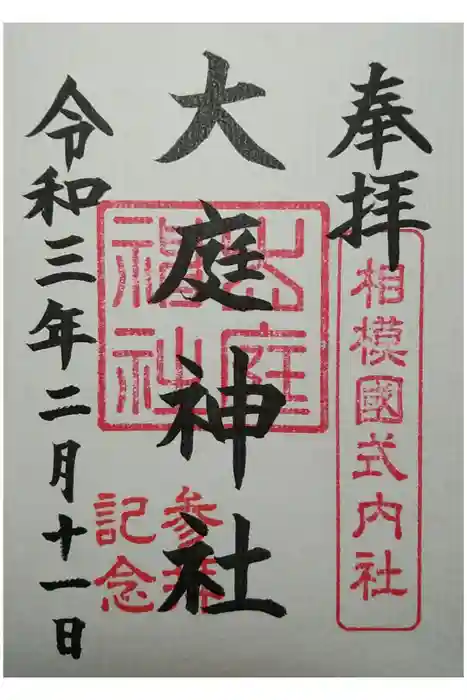 奉拝
相模國式内社
大庭神社
大庭
神社
参拝
記念
令和三年二月十一日